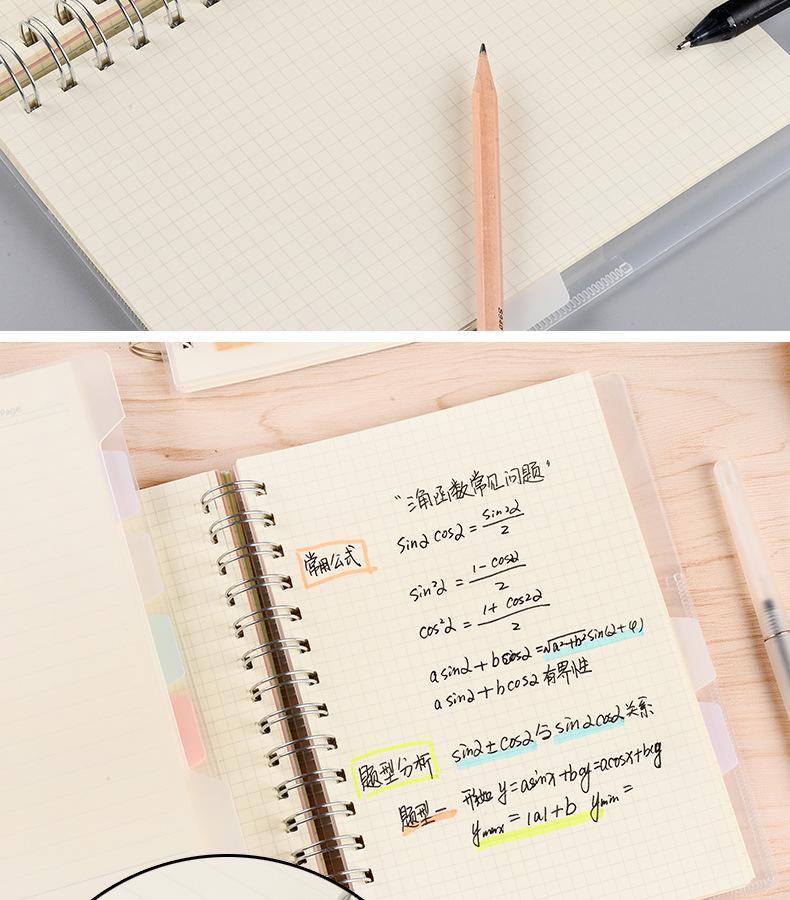 Page
"三角函数常见问题"
常用公式
sinα cosα = sin2α/2
sin²α = 1- cos2α/2
cos²α = 1+ cos2α/2
a sinα + b cosα = √a²+b² sin(α+φ)
a sinα + b cosα 有界性
题型分析
sinα ± cosα 与 sinα cosα 关系
题型一
形如 y = asinx + b
y = acosx + b
ymax = |a| + b ymin =